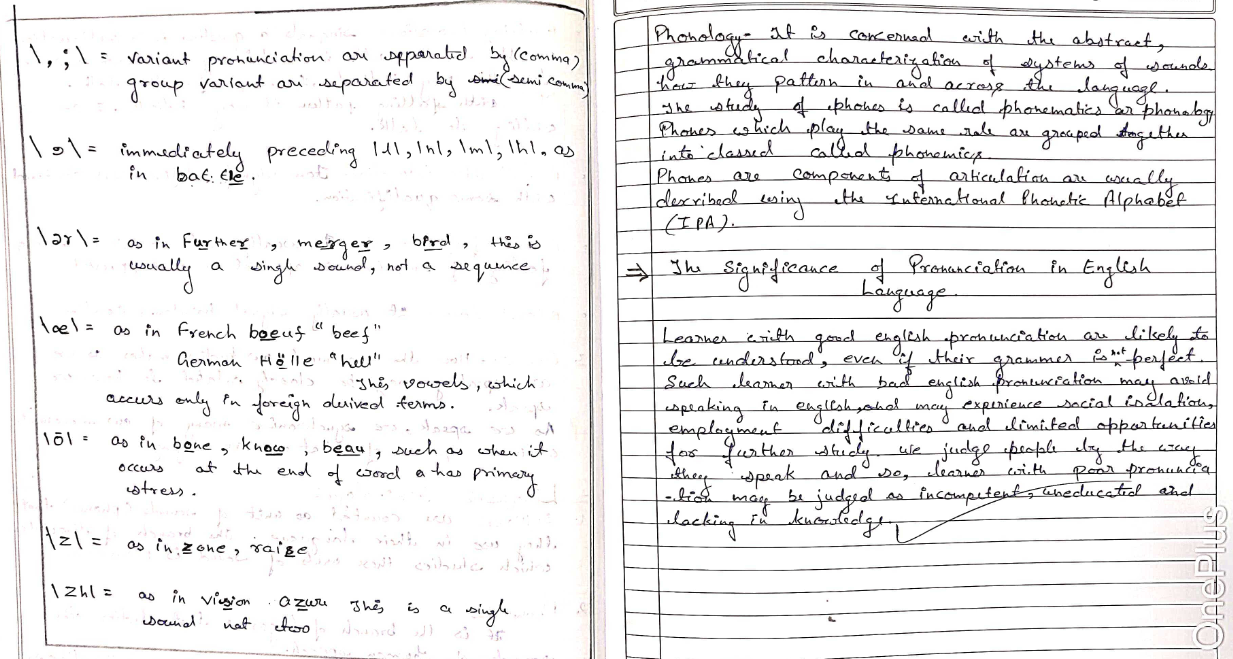 \ , ; \ = variant pronunciation are separated by (comma)
group variant are separated by (semi comma)
\ ə \ = immediately preceding |l|, |n|, |m|, |h|, as
in bat. tle.
\ər\ = as in Further, merger, bird, this is
usually a single sound, not a sequence
\œ\ = as in French boeuf "beef"
German Hölle "hell"
This vowels, which
accurs only in foreign duived terms.
\ō\ = as in bone, know, beau, such as when it
occurs at the end of word a has primary
stress.
\z\ = as in zone, raise
\zh\ = as in vision azure This is a single
sound not two
Phonology- It is concerned with the abstract,
grammatical characterization of systems of sounds
how they pattern in and across the language.
The study of phones is called phonematics or phonology
Phones which play the same role are grouped together
into classed called phonemics.
Phones are components of articulation are usually
described using the International Phonetic Alphabet
(IPA).
⇒ The Significance of Pronunciation in English
Language.
Learner with good english pronunciation are likely to
be understood, even if their grammer is not perfect.
Such learner with bad english pronunciation may avoid
speaking in english, and may experience social isolation,
employment difficulties and limited opportunities
for further study. We judge people by the way
they speak and so, learner with poor pronuncia
-tion may be judged as incompetent, uneducated and
lacking in knowledge.
OnePlus